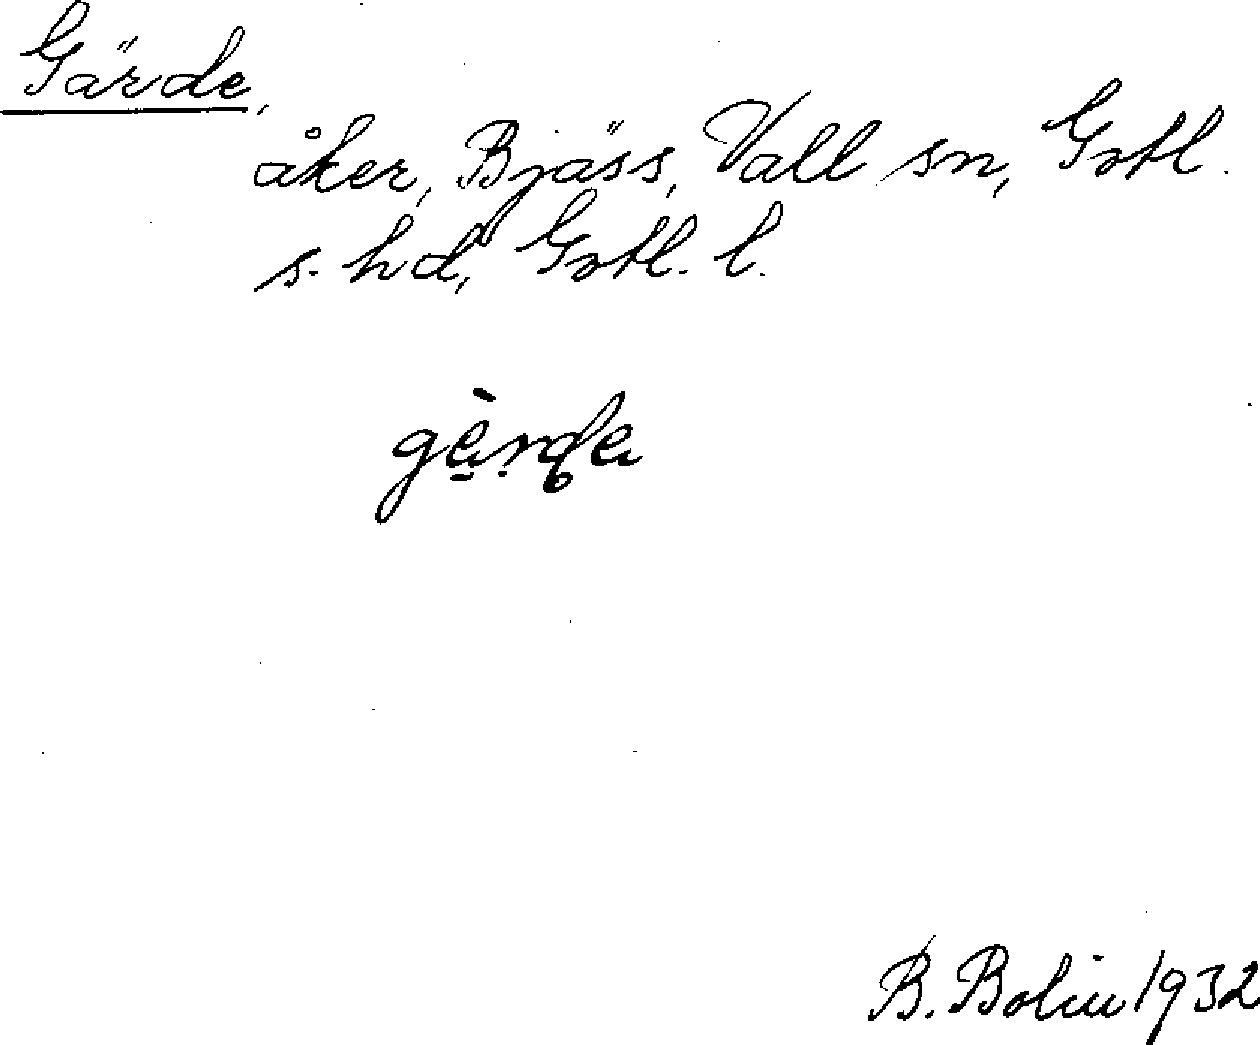 Gärde,
åker, Bjäss, Vall sn, Gotl.
s. hd, Gotl. l.
B. Bolin 1932